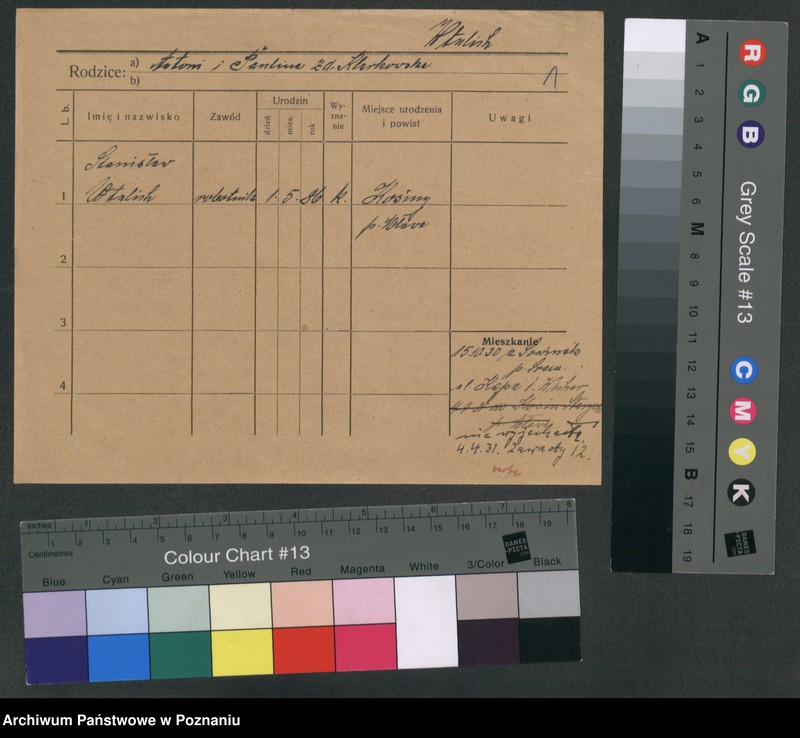 Rodzice: a) Antoni i Paulina zd.
b)
L. b.
Imię i nazwisko
Zawód
Urodzin
dzień
mies.
rok
Wy-
zna-
nie
Miejsce urodzenia
i powiat
Uwagi
Stanisław
1 robotnik 1. 5. 86 k.
2
3
4
Mieszkanie
15.10.30 z
nie wyjechał
4.4.31. Zawady 12.
A
1
2
3
4
5
6
M
8
9
10
11
12
13
14
15
B
17
18
19
R
G
B
Grey Scale #13
C
M
Y
K
DANES
-PICTA
.COM
Inches 1 2 3 4 5 6 7 8
1 2 3 4 5 6 7 8 9 10 11 12 13 14 15 16 17 18 19
Centimetres
Colour Chart #13
DANES
-PICTA
.COM
Blue Cyan Green Yellow Red Magenta White 3/Color Black
Archiwum Państwowe w Poznaniu